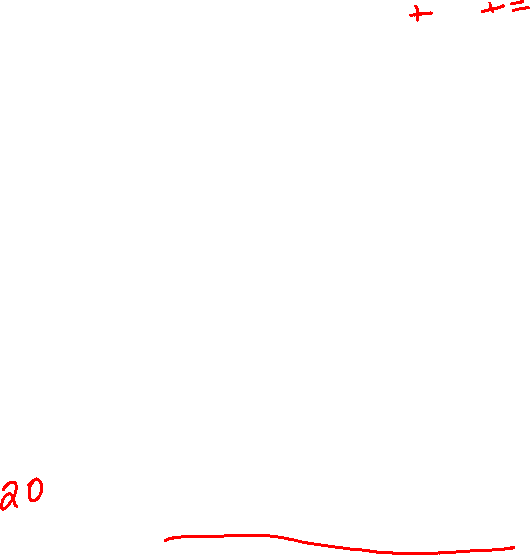 + +=
20